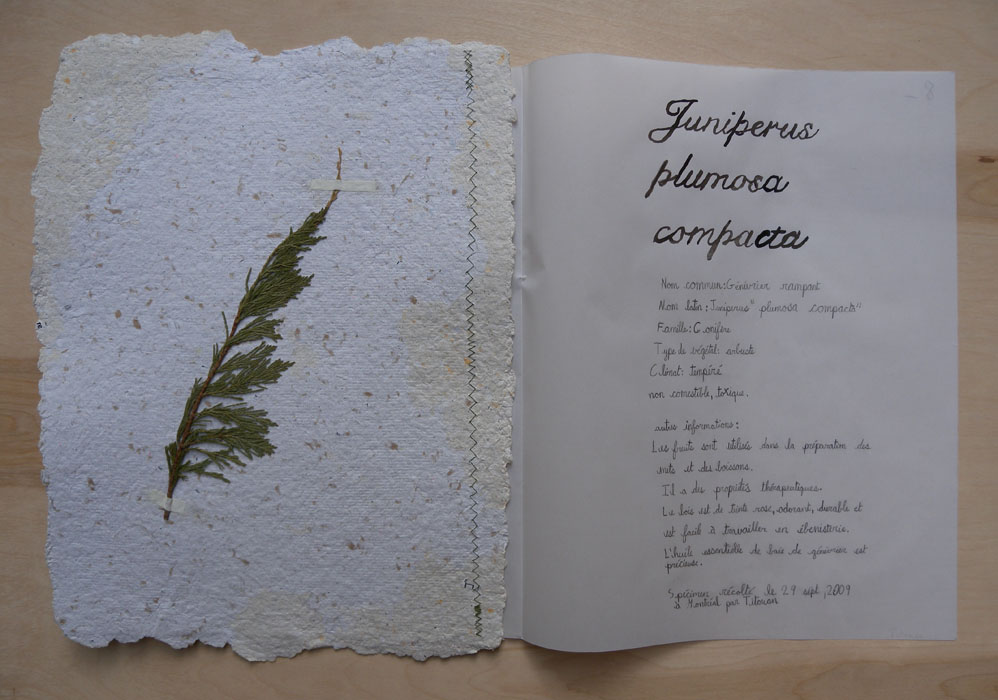 - 8
Juniperus
plumosa
compacta
Nom commun: Génévrier rampant
Nom latin: Juniperus "plumosa compacta"
Famille: Conifère
Type de végétal: arbuste
Climat: tempéré
non comestible, toxique.
autres informations:
Les fruits sont utilisés dans la préparation des
mets et des boissons.
Il a des propriétés thérapeutiques.
Le bois est de teinte rose, odorant, durable et
est facile à travailler en ébenisterie.
L'huile essentielle de baie de génévrier est
précieuse.
Spécimen récolté le 29 sept, 2009
à Montréal par